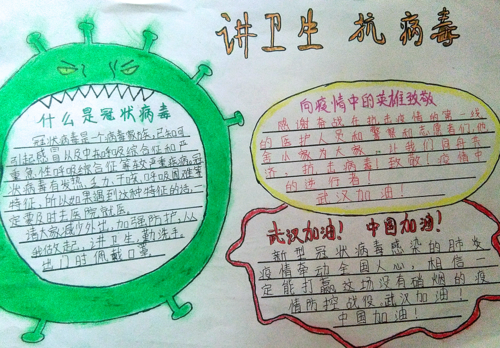 讲卫生 抗病毒
什么是冠状病毒
冠状病毒是一个病毒家族,已知可
引起感冒以及中东呼吸综合征和严
重急性呼吸综合征等较严重疾病。冠
状病毒有发热、乏力、干咳、呼吸困难等
特征,所以如果遇到这种特征的话,一
定要及时去医院就医。
请大家减少外出,加强防护,从
我做起,讲卫生,勤洗手。
出门时佩戴口罩
向疫情中的英雄致敬
感谢奋战在抗击疫情的第一线
的医护人员和警察和志愿者们,他
舍小家为大家,让我们
逆,抗击病毒!致敬!疫情中
的逆行者!
武汉加油!
武汉加油! 中国加油!
新型冠状病毒感染的肺炎
疫情牵动全国人心,相信一
定能打赢这场没有硝烟的疫
情防控战役。武汉加油!
中国加油!